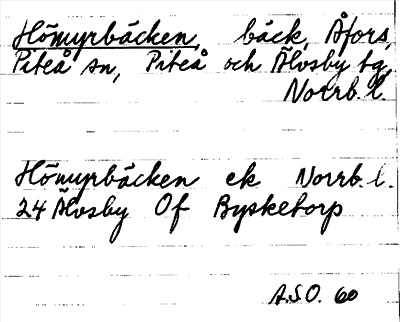 Hömyrbäcken, bäck, Åfors,
Piteå sn, Piteå och Älvsby tg,
Norrb. l.
Hömyrbäcken ek Norrb. l.
24 Älvsby Of Bysketorp
A.S.O. 60